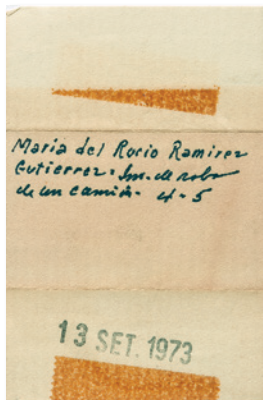 Maria del Rocio Ramirez
Gutierrez. Im. de robo
de un camión. 4-5
13 SET. 1973